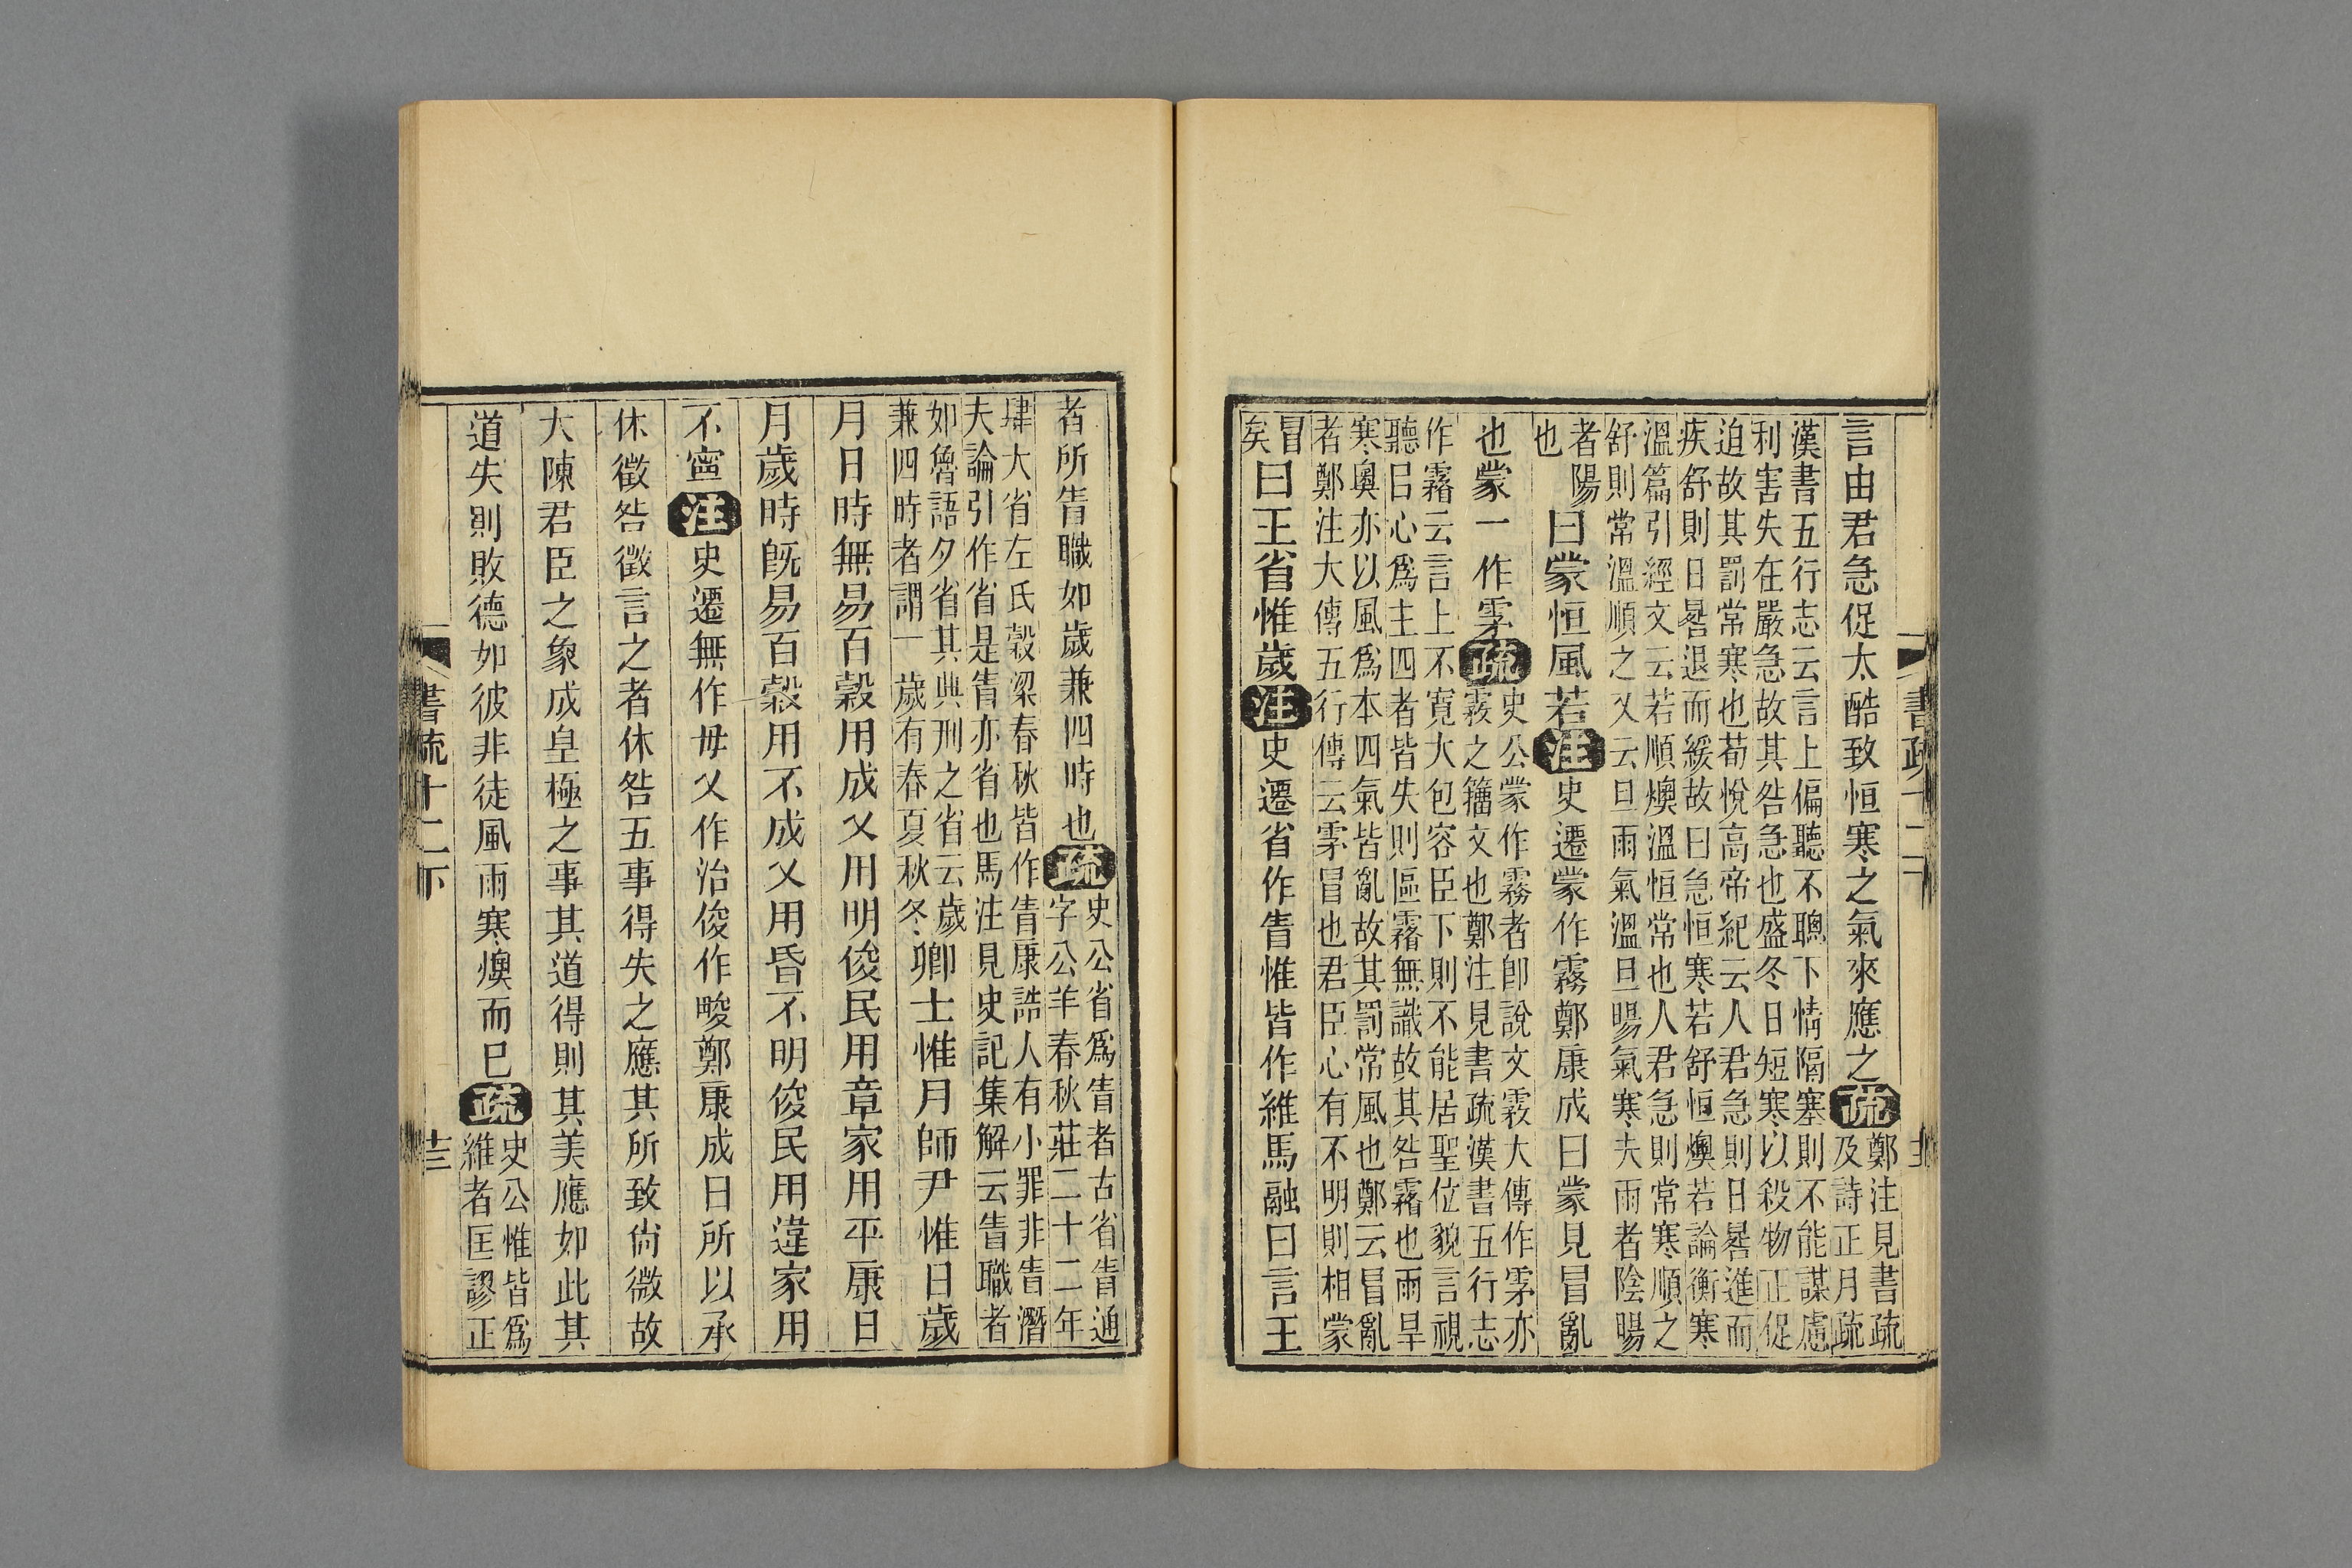 言由君急促太酷致恒寒之氣來應之疏鄭注見書疏
及詩正月疏
漢書五行志云言上偏聽不聰下情隔塞則不能謀慮
利害失在嚴急故其咎急也盛冬日短寒以殺物正促
迫故其罰常寒也荀悅高帝紀云人君急則日晷進而
疾舒則日晷退而緩故曰急恒寒若舒恒燠若論衡寒
溫篇引經文云若順燠溫恒常也人君急則常寒順之
舒則常溫順之又云旦雨氣溫旦暘氣寒夫雨者陰暘
者陽
也
曰蒙恒風若注史遷蒙作霧鄭康成曰蒙見冒亂
也蒙一作雺疏史公蒙作霧者卽說文霚大傳作雺亦
霚之籀文也鄭注見書疏漢書五行志
作霿云言上不寬大包容臣下則不能居聖位貌言視
聽㠯心爲主四者皆失則區霿無識故其咎霿也雨旱
寒奧亦以風爲本四氣皆亂故其罰常風也鄭云冒亂
者鄭注大傳五行傳云雺冒也君臣心有不明則相蒙
冒
矣
曰王省惟歲注史遷省作眚惟皆作維馬融曰言王
者所眚職如歲兼四時也疏史公省爲眚者古省眚通
字公羊春秋莊二十二年
肆大省左氏穀梁春秋皆作眚康誥人有小罪非眚潛
夫論引作省是眚亦省也馬注見史記集解云眚職者
如魯語夕省其典刑之省云歲
兼四時者謂一歲有春夏秋冬
卿士惟月師尹惟日歲
月日時無易百穀用成乂用明俊民用章家用平康日
月歲時旣易百穀用不成乂用昏不明俊民用違家用
不寍注史遷無作毋乂作治俊作畯鄭康成曰所以承
休徵咎徵言之者休咎五事得失之應其所致尙微故
大陳君臣之象成皇極之事其道得則其美應如此其
道失則敗德如彼非徒風雨寒燠而巳疏史公惟皆爲
維者匡謬正
書疏十二下
十三